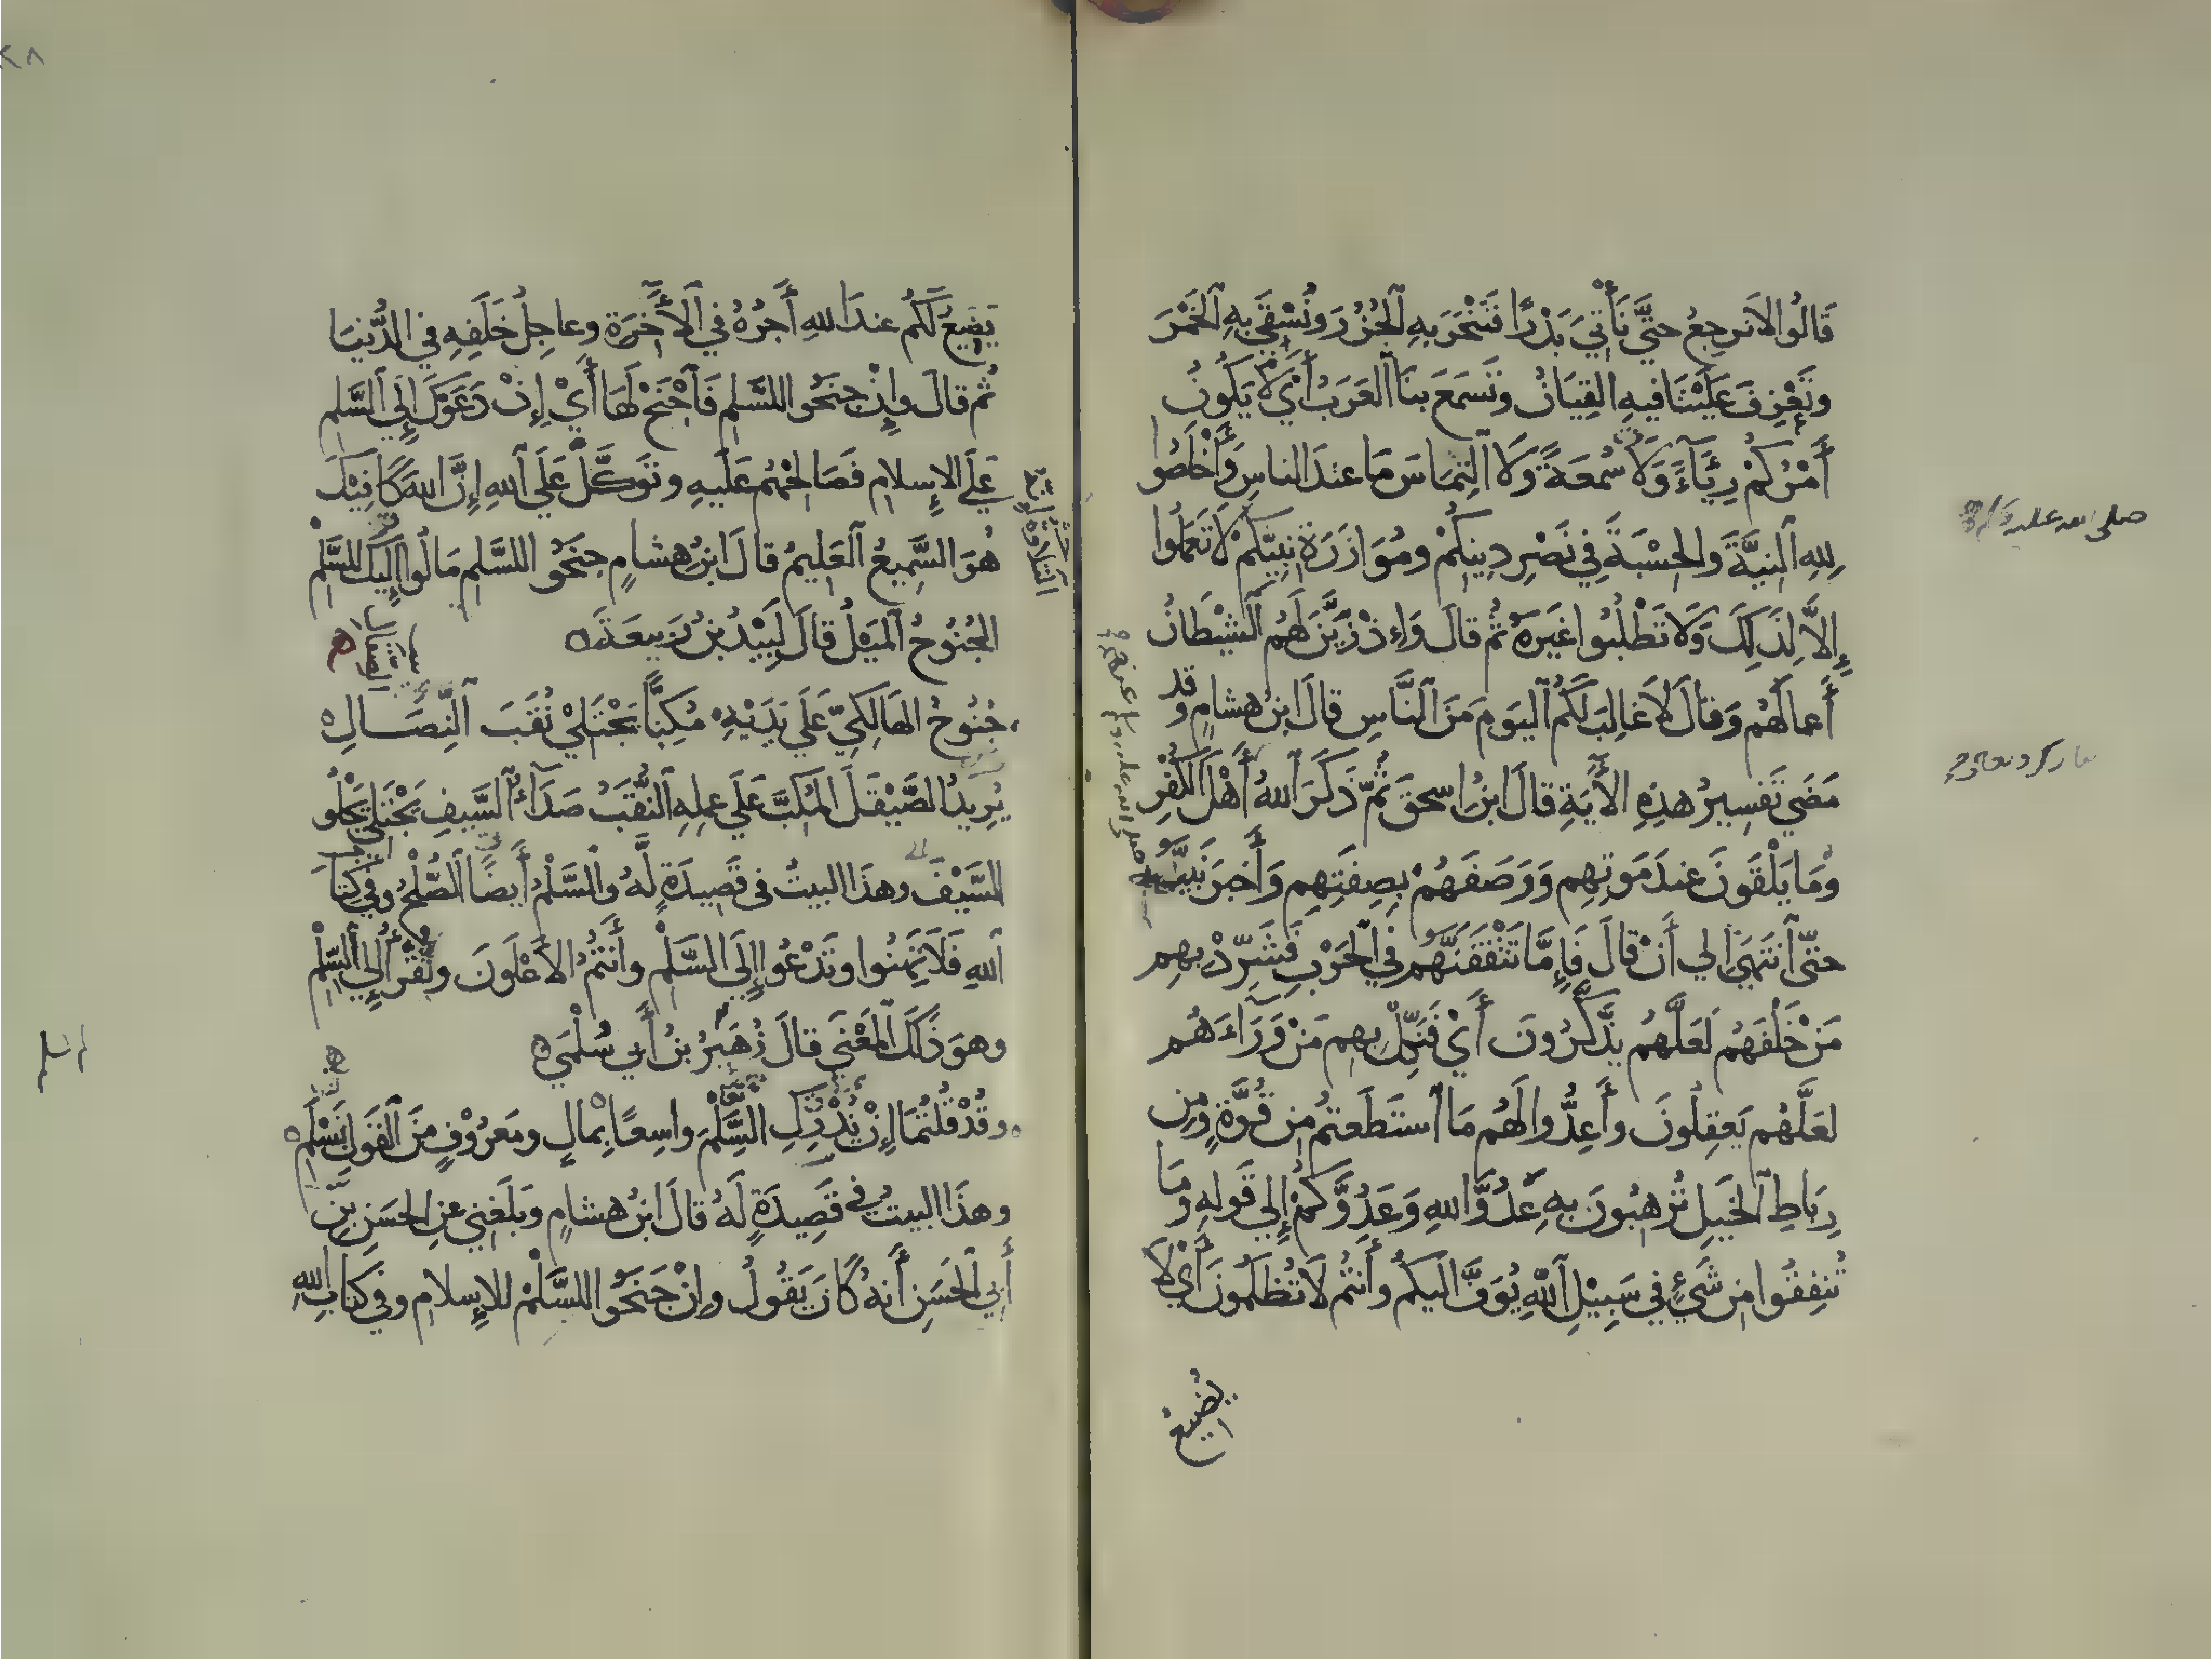 قَالُوا لا نرجِعُ حتَّى نَأْتِيَ بَدْرًا فَنَنْحَرَ بِهِ ٱلجُزُرَ وَنُسْقَى بِهِ ٱلخَمْرَ
وتَعْزِفَ عَلَيْنَا فيهِ القِيَانُ وتَسمَعَ بنَا ٱلعَرَبُ أَيْ لَا يَكُونُ
أَمْرُكُمْ رِئَآءً وَلَا سُمعَةً وَلَا ٱلتِمَاسَ مَا عندَ الناسِ وَأَخْلِصُوا
لِلهِ ٱلنِيَّةَ والحِسْبَةَ فِي نَصْرِ دِينِكُمْ ومُوَازَرَةِ نبِيِّكمْ لَا تَعمَلُوا
إِلاَّ لِذَلِكَ وَلَا تَطْلُبُوا غَيرَهُ ثُم قالَ وَإِذ زَيَّنَ لَهُم ٱلشيْطَانُ
أَعمالَهُم وَقالَ لَا غَالِبَ لَكُمُ ٱليَومَ مِنَ ٱلنَّاسِ قالَ ابنُ هشامٍ وقد
مَضَى تَفسِيرُ هذِهِ الأٓيَةِ قالَ ابنُ اسحٰقَ ثُمَّ ذَكَرَ ٱللهُ أَهْلَ ٱلكُفْرِ
وَمَا يَلْقَونَ عِندَ مَوتِهِم وَوَصَفَهُمْ بِصِفَتِهِم وَأَخبَرَ نَبِيَّهُ
حتّى ٱنتَهَى إلى أَنْ قالَ فَإِمَّا تَثْقَفَنَّهُم فِي ٱلحَرْبِ فَشَرِّدْ بِهِم
مَنْ خَلْفَهُم لَعَلَّهُم يذَّكَّرُونَ أَيْ فَنَكِّلْ بِهِم مَنْ وَرَآءَهُم
لَعَلَّهُم يَعقِلُونَ وأَعِدُّوا لَهُم مَا ٱستَطَعتمُ مِن قُوَّةٍ وَمِن
رِبَاطِ ٱلخَيلِ تُرهِبُونَ بِهِ عَدُوَّ اللهِ وَعَدُوَّكُمْ إِلي قَولِهِ وَمَا
تُنفِقُوا مِن شَىْءٍ فِي سَبِيْلِ ٱللَّهِ يُوَفَّ اليكُمْ وأَنتُم لَا تُظلَمُونَ أَيْ لَا
يُضيعُ
صلى الله عليه
يَضِيعُ لَكُم عندَ اللهِ أَجرُهُ في ٱلأٓخِرَةِ وعاجِلُ خَلَفِهِ في الدُّنيَا
ثُم قالَ وإِنْ جنَحُوا للسَّلمِ فَٱجْنَحْ لَهَا أَيْ إِنْ دَعَوْكَ إِلَى ٱلسَّلمِ
عَلَى الإِسلامِ فَصَالِحْهُم عَلَيهِ وتَوَكَّلْ عَلَى ٱللهِ إِنَّ اللهَ كَافِيْكَ
هُوَ السَّمِيعُ ٱلعَلِيمُ قالَ ابنُ هِشامٍ جنَحُوا للسَّلمِ مَالُوا إِلَيكَ للسَّلْمِ
الجُنُوحُ ٱلمَيْلُ قالَ لَبِيْدُ بنُ رَبيعَةَ
جُنُوحُ الهَالِكِيِّ عَلَى يَدَيْهِ مُكِبًّا يَجْتَلِي نُقَبَ ٱلنِّصَالِ
يُرِيدُ الصَّيْقَلَ المُكِبَّ عَلَى عملِهِ ٱلنُّقَبُ صَدَأُ ٱلسَّيفِ يَجْتَلِي يَجْلُو
السَّيْفَ وهذَا البيتُ في قَصِيدَةٍ لَّهُ والسَّلْمُ أَيضًا ٱلصُّلْحُ وفي كِتَابِ
ٱللهِ فَلَا تَهِنُوا وتَدْعُوا إِلَى السَّلْمِ وأَنتُمُ الأَعْلَونَ ويُقْرَأُ إِلي ٱلسِّلْمِ
وهوَ ذَلكَ المَعْنَى قالَ زُهَيرُ بنُ أَبي سُلْمَى
وقَدْ قُلتُمَا إِنْ نُدْرِكِ السَّلْمَ واسِعًا بِمالٍ ومَعرُوْفٍ مِّنَ ٱلقَولِ نَسْلَمِ
وهذَا البيتُ في قَصِيدَةٍ لَهُ قالَ ابنُ هشامٍ وَبلَغَنِي عنِ الحَسَنِ بنِ
أَبي ٱلحَسَنِ أَنهُ كَانَ يَقُولُ وإنْ جَنَحُوا للسَّلْمِ للإِسلامِ وفي كتابِ اللهِ